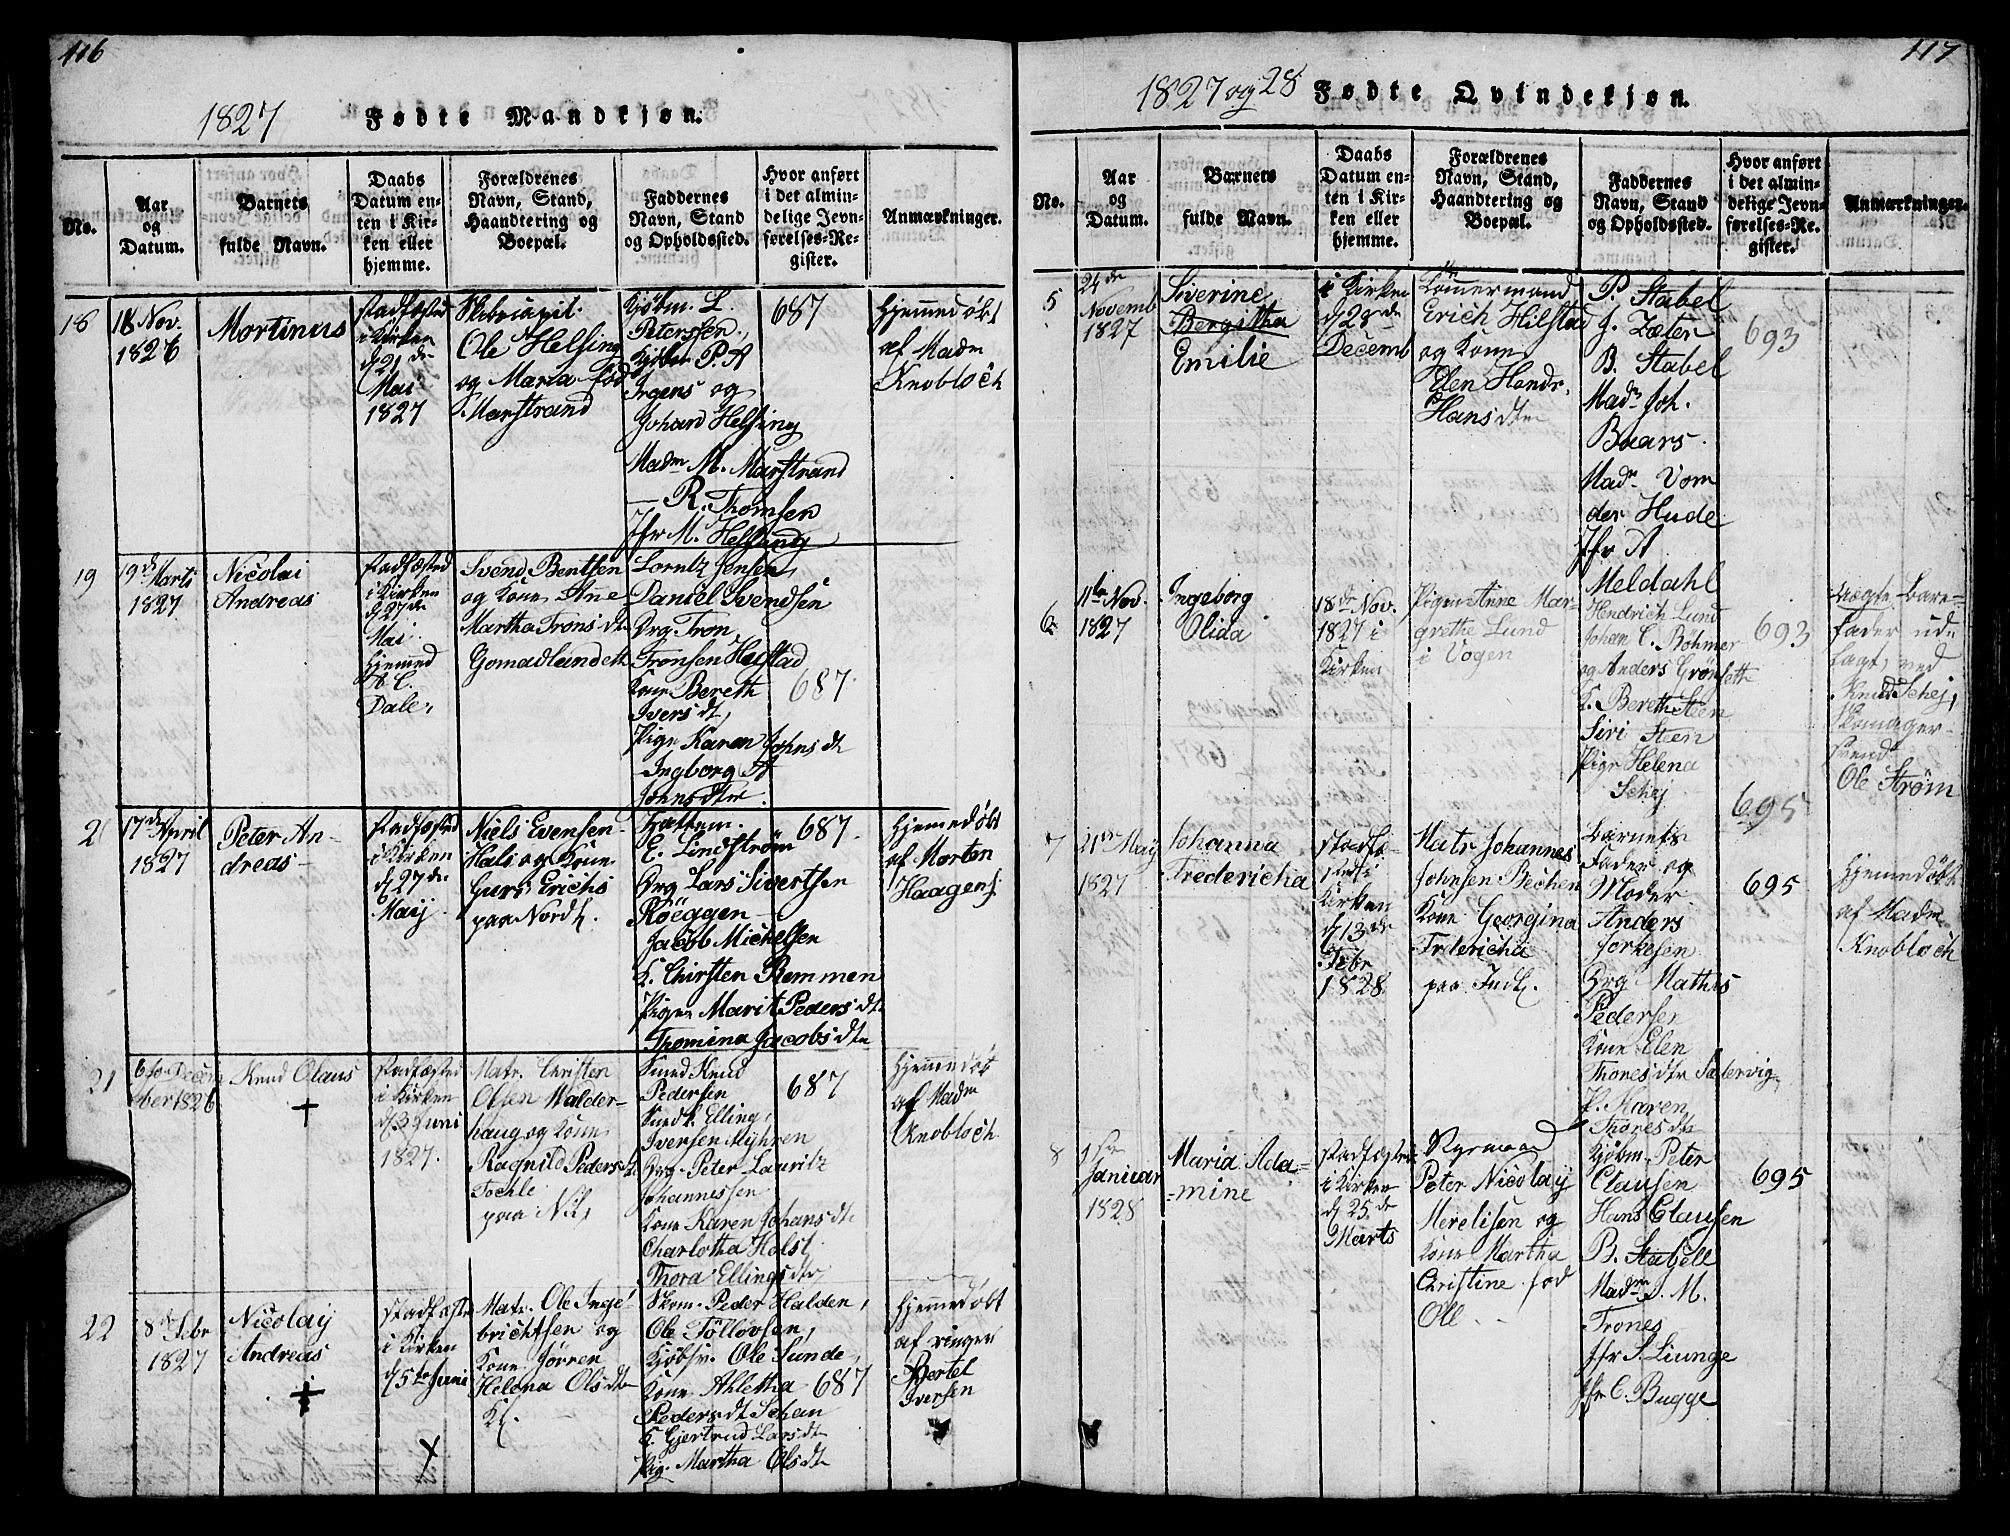 116
1827 Fødte Mandkjøn.
No.
Aar
og
Datum.
Barnets
fulde Navn.
Daabs
Datum en-
ten i Kir-
ken eller
hjemme.
Forældrenes
Navn, Stand,
Haandtering og
Boepæl.
Faddernes
Navn, Stand
og Opholdssted.
Hvor anført
i det almin-
delige Jevn-
førelses-Re-
gister.
Anmærkninger.
18
18 Nov.
1826
Mortinus
stadfæsted
i Kirken
d 21 de
Mai
1827
Skibscapit.
Ole Helsing
og Maria fød
Marstrand
Kjöbm. L.
Peterssen,
Kjöbm P. A
Irgens og
Johan Helsing
Madm M. Marstrand
— R. Thomsen
Jfr M. Helsing
687
Hjemmedøbt
af Madm
Knobloch
19
19 de Marts
1827
Nicolai
Andreas
stadfæsted
i Kirken
d 27 de
Mai
hjemmed
A. C.
Dale,
Svend Bentsen
og Kone Ane
Martha Trons dt
Gomadlandett
Lorntz Jensen,
Daniel Svendsen
Drg Tron
Tronsen Heistad
Kone Bereth
Ivers dt,
Pige Karen Johns dt
Ingborg A
Johnsdtr.
687.
2
17 de April
1827
Peter An-
dreas
stadfæsted
i Kirken
d 27 de
Maij
Niels Evensen
Hals og Kone
Gurs Erichs
paa Nordl.
E. Lindstrøm
Drg Lars Sivertsen
Röeggen
Jacob Michelsen
K. Chirsten Remmen
Pigen Marit Peders dt
Thomina Jacobs dtr
687.
Hjemedøbt
af Morten
Haagens.
21
6 te Decem
ber 1826
Knud Olaus
+
stadfæsted
i Kirken
d 3 Juni
1827.
Matr. Christen
Olsen Walder-
haug og Kone
Ragnild Peders dt
Tochle
paa Nil,
Smed Knud
Pedersen
Smed k. Elling
Iversen Myhren
Drg. Peter Lauritz
Johannessen
Kone Karen Johans dt
Charlotha Holst
Thora Ellings dtr
687
Hjemmedøbt
af Madm
Knobloch
22
8 de Febr
1827
Nicolay
Andreas
+
stadfæsted
i Kirken
d 5 te Juni
X
Matr. Ole Inge-
brichtsen og
Kone Jørren
Helena Ols dtr
Kl.
Skom. Peder Halden,
Ole Töllovsen,
Kjöbsv. Ole Sunde,
Kone Ahletha
Peders dt Schan
K. Gjertrud Lars dt
Pig. Martha Ols dt
687
Hjemmedøbt
af ringer
Bertel
Iversen
117
1827 og 28 Fødte Qvindekjøn.
No.
Aar
og
Datum.
Barnets
fulde Navn.
Daabs
Datum en-
ten i Kir-
ken eller
hjemme.
Forældrenes
Navn, Stand,
Haandtering og
Boepæl.
Faddernes
Navn, Stand
og Opholdssted.
Hvor anført
i det almin-
delige Jevn-
førelses-Re-
gister.
Anmærkninger.
5
24 de
Novemb
1827
Siverine
Bergitha
Emilie
i Kirken
d 2 de
Decemb
Tömmermand
Erich Hilstad
og Kone
Elen Hands
Hans dtr
P. Stabel
J. Zæter
B. Stabel
Madm Joh.
Baars.
Madm Vom
der Hude
Jfr A
Meldahl
693
6
11 te Nov.
1827
Ingeborg
Olida
18 de Nov.
1827 i
Kirken
Pigen Anne Mar-
grethe Lund
i Vogen
Hendrich Lund
Johan C. Bøhmer
og Anders Grönsett
K. Bereth Steen
Siri Steen
Pige Helena
Schej
693
695
Uægte, Barne-
fader ud-
lagt, ved
Knud Schej,
Skomager-
svend
Ole Strøm
7
21 de May
1827
Johanna
Fredericha
stadfæ-
sted i
Kirken
d 13 de
Febr
1828
Matr Johannes
Johnsen Bechen
Kone Georgina
Friedericha
paa Indl.
Barnets
Fader og
Moder
Anders
Jorkesen
Drg Mathis
Pedersen
Kone Elen
Thores dtr Satervig
P. Maren
Thores dtr
695
Hjemmedøbt
af Madm
Knobloch
8
1 ste
Januar
1828
Maria Ada-
mine
stadfæsted
i Kirken
d 25 de
Marts
Peter Nicolay
Merelisen og
Kone Martha
Christine fød
Oll
Kjöbm. Peter
Clausen
Hans Clausen
B. Stabell
Madm J. M.
Trones
Jfr S. Liunge
Jfr C. Bugge
695